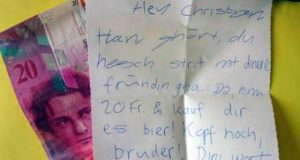 20
Hey Christian
Han ghört, du
hesch strit mit dinere
fründin gha. Da, nim
20 Fr. & kauf dir
es bier! Kopf hoch,
bruder! Dini wort